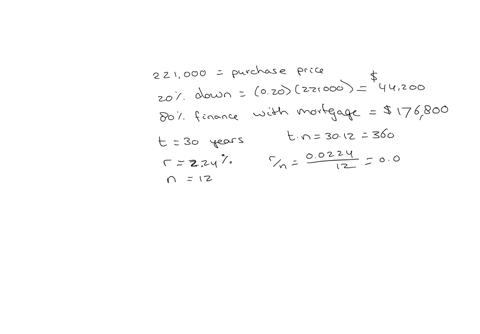 221,000 = purchase price
20% down = (0.20)(221000) = $44,200
80% finance with mortgage = $176,800
t = 30 years t·n = 30·12 = 360
r = 2.24% r/n = 0.0224/12 = 0.0
n = 12